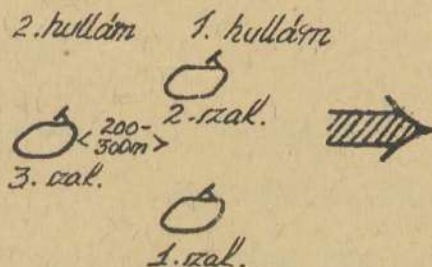 2. hullám 1. hullám
2. szak.
< 200-
300m >
3. szak.
1. szak.